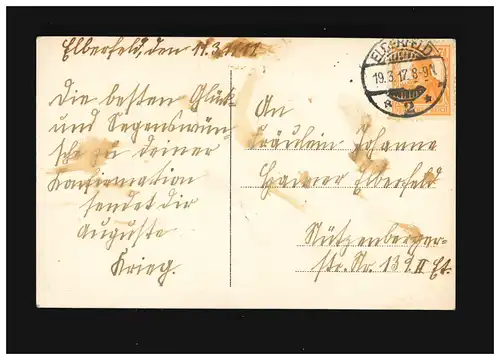 Elberfeld, den 17.3.1917.
Die besten Glück-
und Segenswün-
sche zu deiner
Konfirmation
sendet dir
Auguste
Krieg.
ELBERFELD
19.3.17. 8-9
* 2 *
An
Fräulein Johanne
Elberfeld
Nützenberger-
str. Nr. 132 II Et.